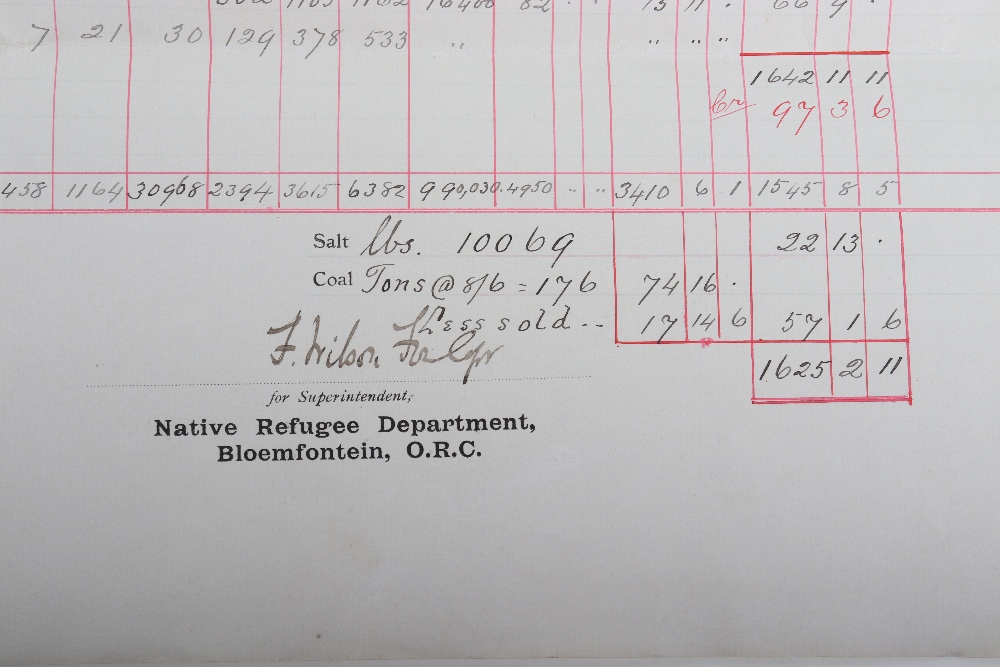 7 21 30 129 378 533 " " " "
1642 11 11
Cr 97 3 6
458 1164 30968 2394 3615 6382 990,030 4950 " " 3410 6 1 1545 8 5
Salt lbs. 10069 22 13 .
Coal Tons @ 8/6 = 176 74 16 .
Less sold -- 17 14 6 57 1 6
F. Wilson
1625 2 11
for Superintendent,
Native Refugee Department,
Bloemfontein, O.R.C.